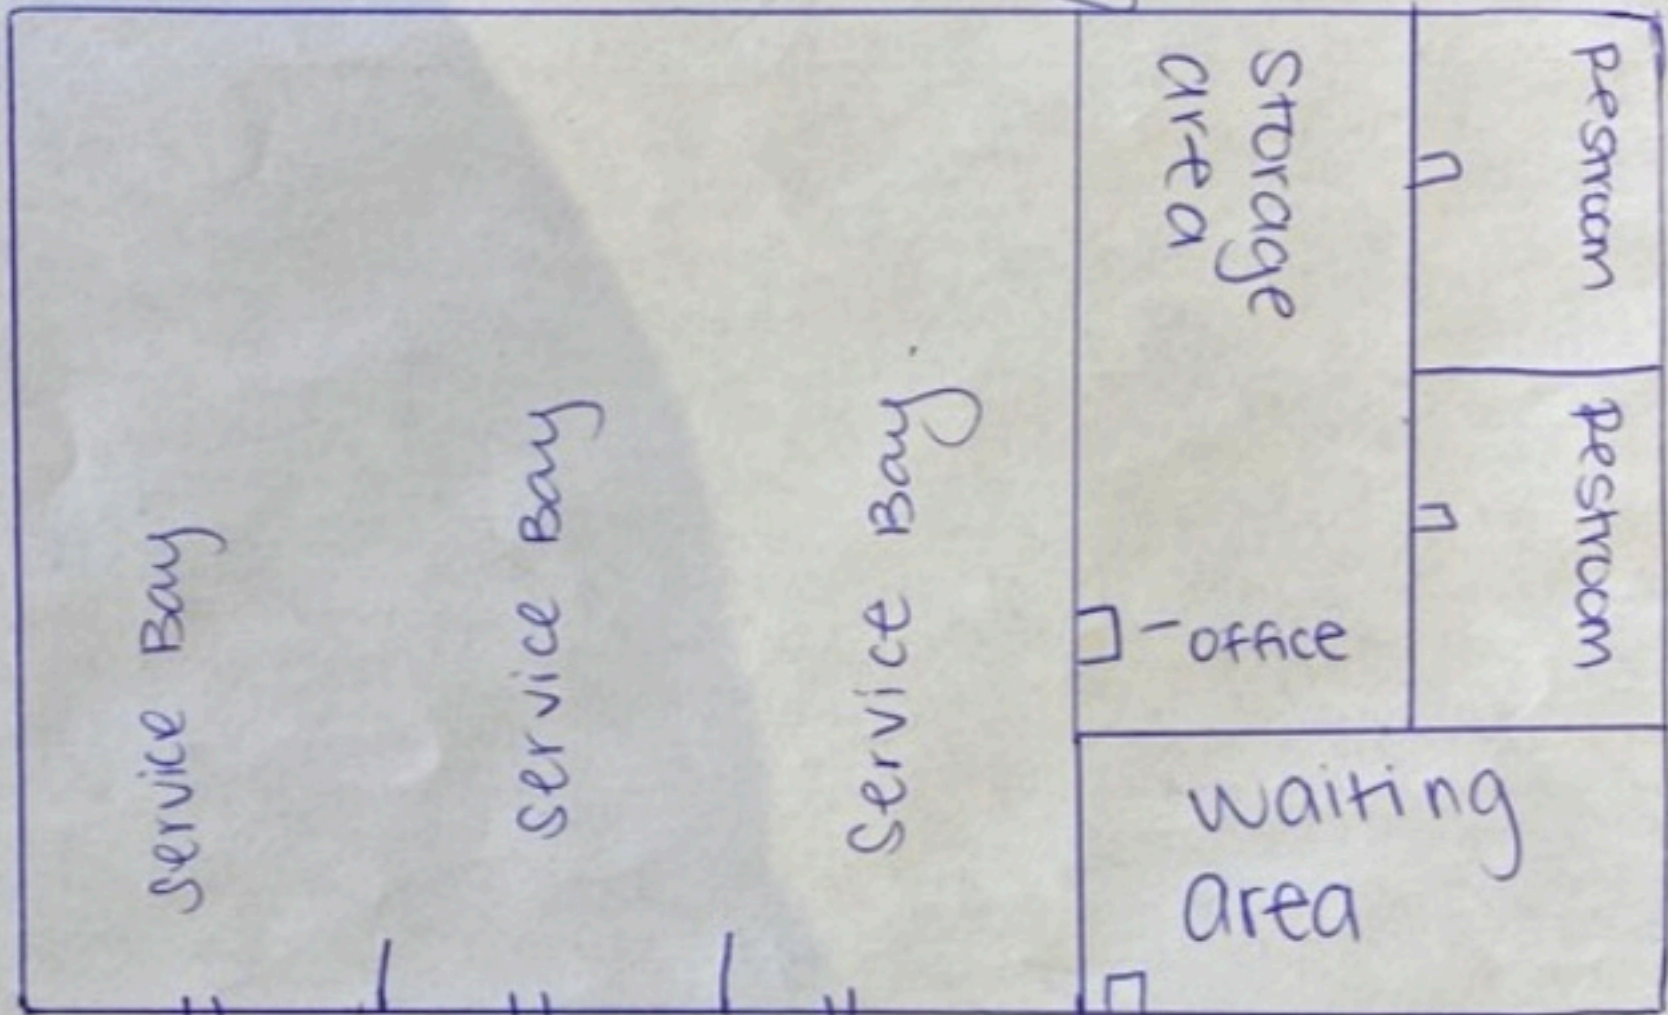 Service Bay
Service Bay
Service Bay
Storage
area
Restroom
Restroom
-office
waiting
area